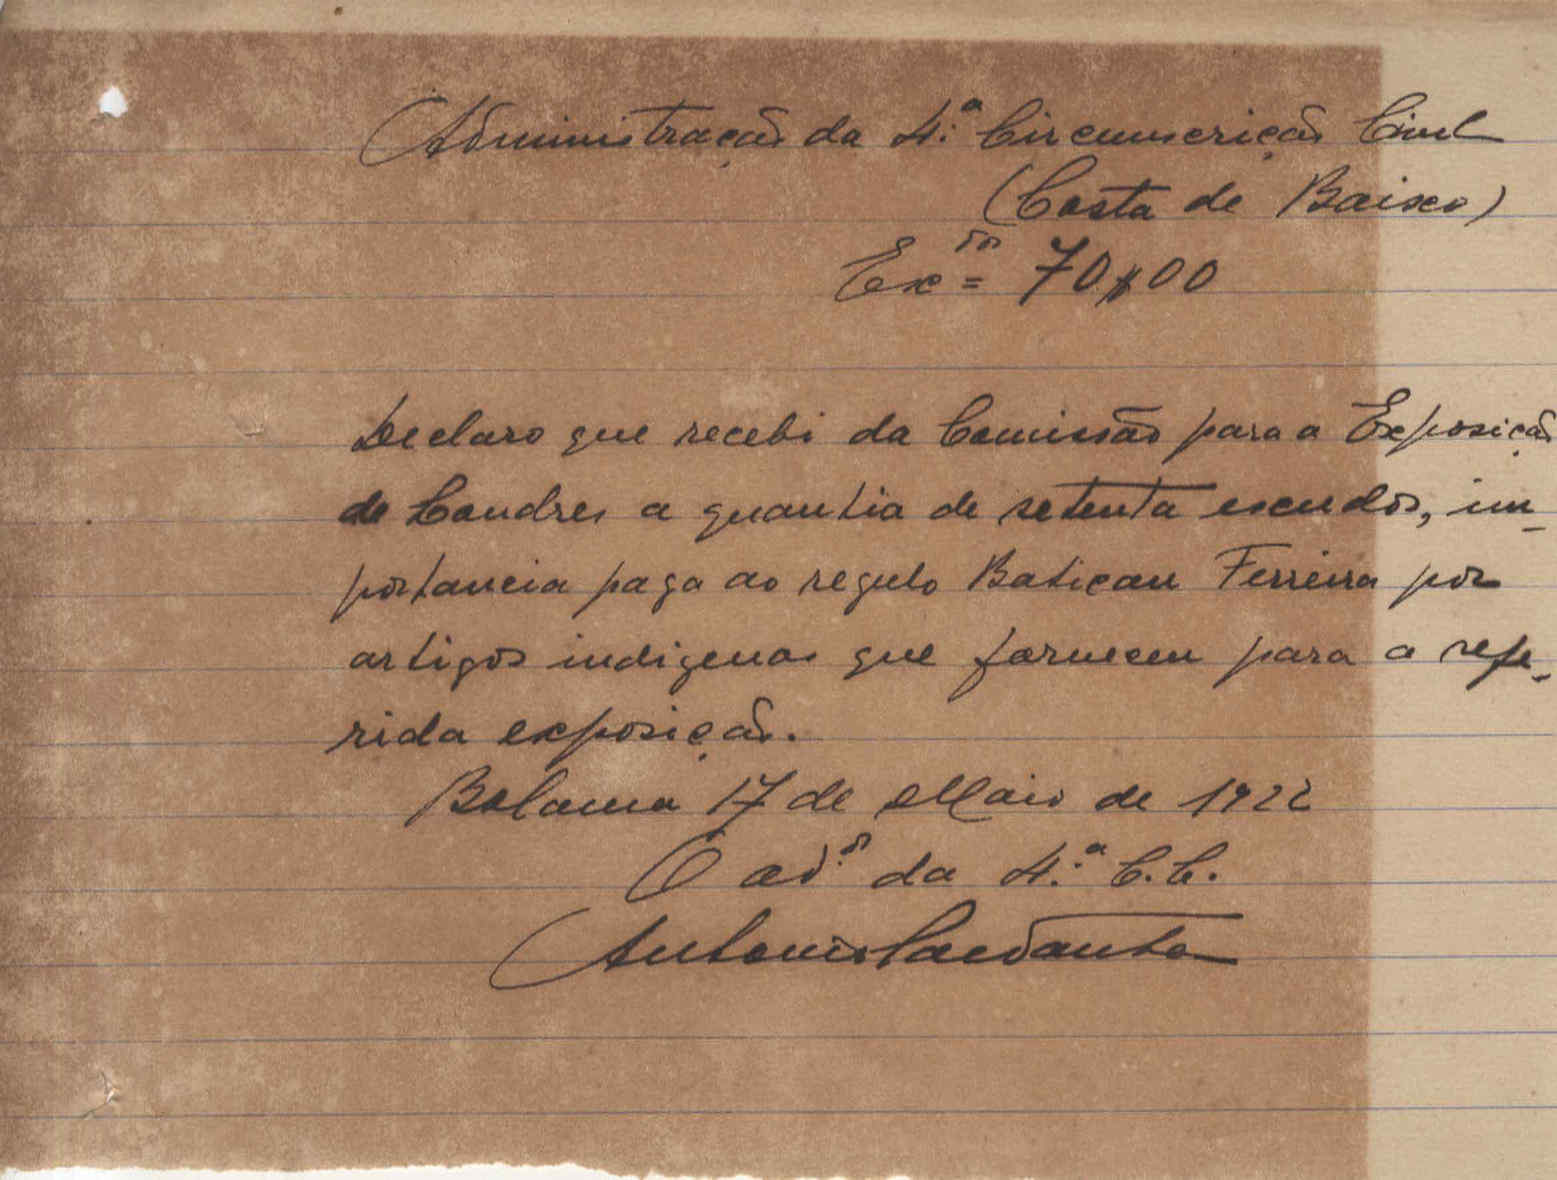 Administração da 4.ª Circumscrição Civil
(Costa de Baixo)
70$00
Declaro que recebi da Comissão para a Exposição
de Londres a quantia de setenta escudos, im-
portancia paga ao regulo Batican Ferreira por
artigos indigenas que forneceu para a refe-
rida exposição.
Bolama 17 de Maio de 1922
O ad.or da 4.ª C.C.
Antonio